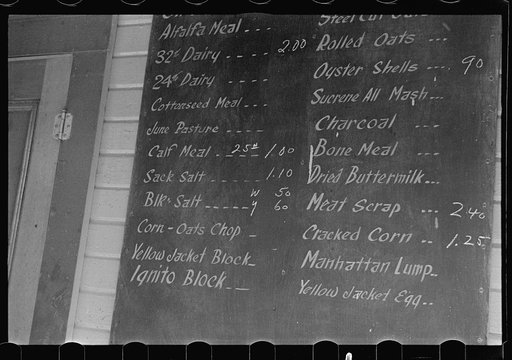 Alfalfa Meal ---
32% Dairy ---- 2.00
24% Dairy ----
Cottonseed Meal ---
June Pasture ----
Calf Meal - 25# - 1.00
Sack Salt ------- 1.10
Blk. Salt ------ W 50
Y 60
Corn-Oats Chop -
Yellow Jacket Block-
Ignito Block--
Steel Cut Oats
Rolled Oats ---
Oyster Shells ---- 90
Sucrene All Mash---
Charcoal ---
Bone Meal ---
Dried Buttermilk---
Meat Scrap --- 2.40
Cracked Corn -- 1.25
Manhattan Lump-
Yellow Jacket Egg--